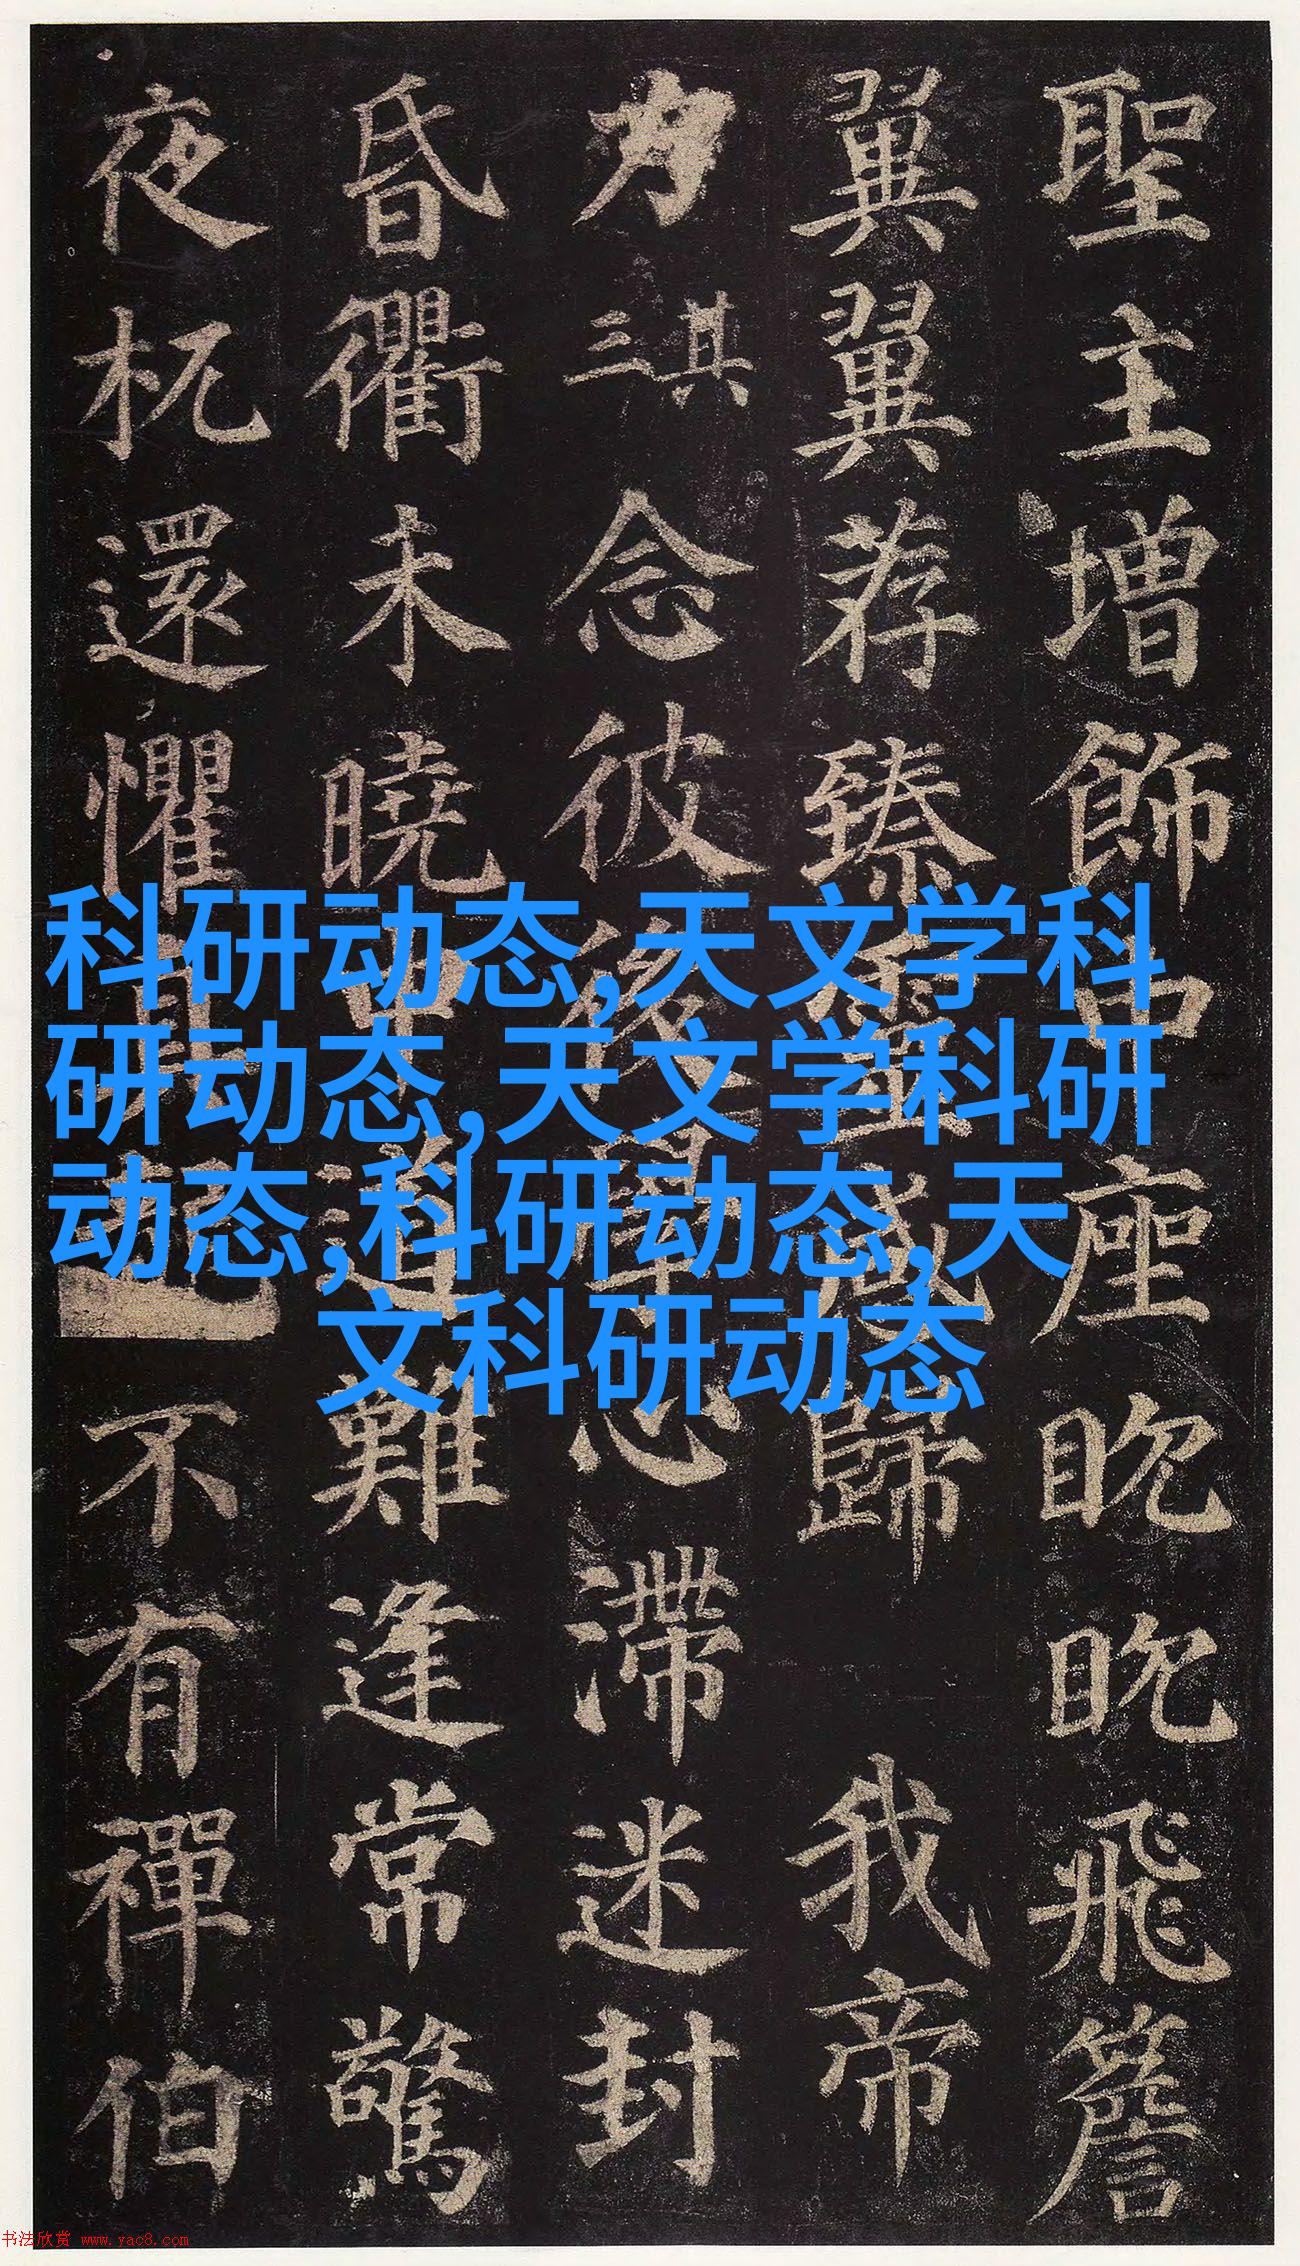 聖主增飾中座眈眈飛簷
翼翼荐臻聖盛歸我帝
力其三念彼後學心滯迷封
昏衢未曉中道難逢常驚
夜杌還懼真不有禪伯
科研动态,天文学科
研动态,天文学科研
动态,科研动态,天
文科研动态
书法欣赏 www.yac8.com